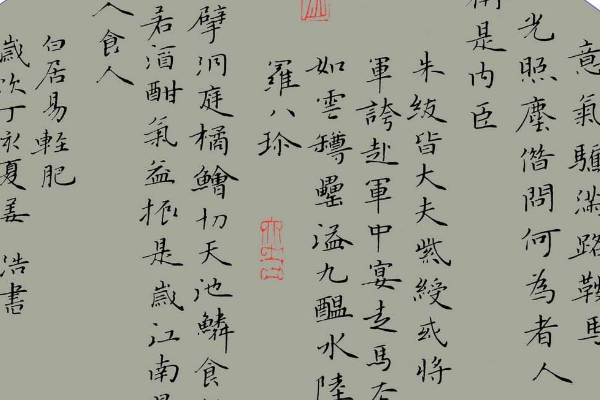 意氣驕滿路鞍馬
光照塵借問何為者人
是内臣
朱紱皆大夫紫綬或將
軍誇赴軍中宴走馬去
如雲罇罍溢九醖水陸
羅八珍
擘洞庭橘鱠切天池鱗食
若酒酣氣益振是歲江南
人食人
白居易輕肥
歲次丁夏姜浩書